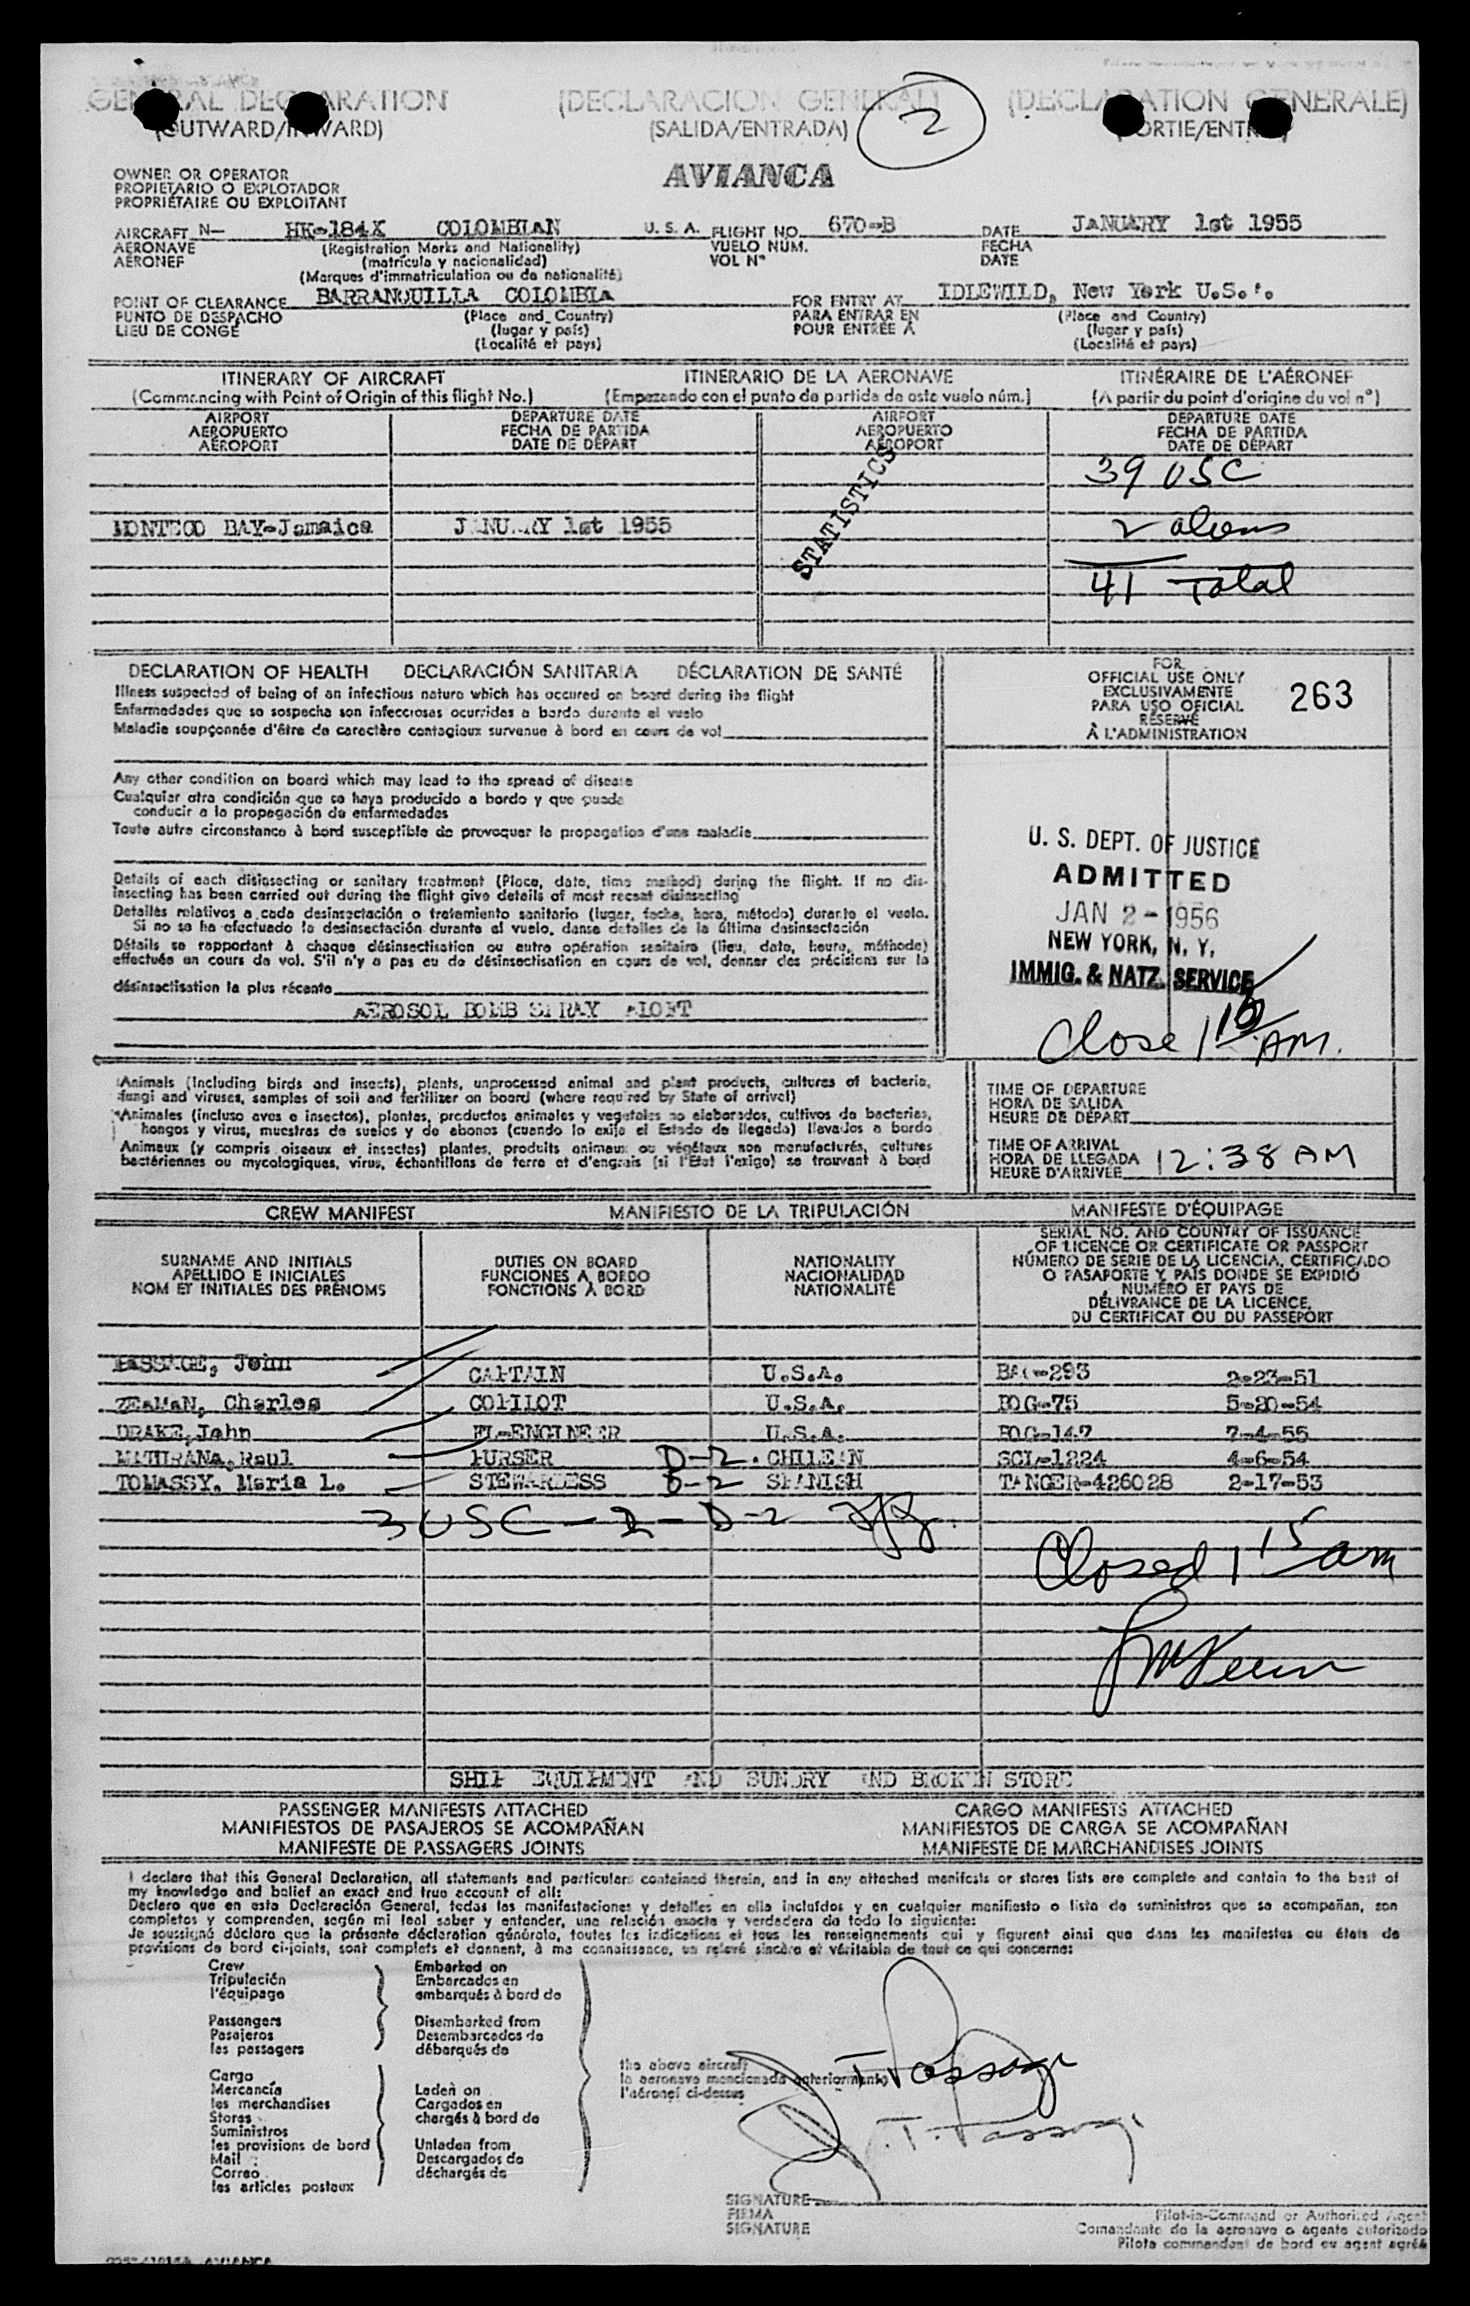 GENERAL DECLARATION (DECLARACION GENERAL) (DECLARATION GENERALE)
(OUTWARD/INWARD) (SALIDA/ENTRADA) 2 (SORTIE/ENTRÉE)
AVIANCA
OWNER OR OPERATOR
PROPIETARIO O EXPLOTADOR
PROPRIÉTAIRE OU EXPLOITANT
AIRCRAFT N- HK-184X COLOMBIAN U. S. A. FLIGHT NO. 670-B DATE JANUARY 1st 1955
AERONAVE (Registration Marks and Nationality) VUELO NÚM. FECHA
AÉRONEF (matrícula y nacionalidad) VOL Nº DATE
(Marques d'immatriculation ou de nationalité)
POINT OF CLEARANCE BARRANQUILLA COLOMBIA FOR ENTRY AT IDLEWILD, New York U.S.A.
PUNTO DE DESPACHO (Place and Country) PARA ENTRAR EN (Place and Country)
LIEU DE CONGÉ (lugar y país) POUR ENTRÉE A (lugar y país)
(Localité et pays) (Localité et pays)
ITINERARY OF AIRCRAFT ITINERARIO DE LA AERONAVE ITINÉRAIRE DE L'AÉRONEF
(Commencing with Point of Origin of this flight No.) (Empezando con el punto de partida de este vuelo núm.) (A partir du point d'origine du vol nº)
AIRPORT DEPARTURE DATE AIRPORT DEPARTURE DATE
AEROPUERTO FECHA DE PARTIDA AEROPUERTO FECHA DE PARTIDA
AÉROPORT DATE DE DÉPART AÉROPORT DATE DE DÉPART
39 USC
STATISTICS
MONTEGO BAY-Jamaica JANUARY 1st 1955 2 aliens
41 Total
DECLARATION OF HEALTH DECLARACIÓN SANITARIA DÉCLARATION DE SANTÉ
Illness suspected of being of an infectious nature which has occured on board during the flight
Enfermedades que se sospecha son infecciosas ocurridas a bordo durante el vuelo
Maladie soupçonnée d'être de caractère contagieux survenue à bord en cours de vol
FOR
OFFICIAL USE ONLY
EXCLUSIVAMENTE
PARA USO OFICIAL
RÉSERVÉ
À L'ADMINISTRATION
263
Any other condition on board which may lead to the spread of disease
Cualquier otra condición que se haya producido a bordo y que pueda
conducir a la propagación de enfermedades
Toute autre circonstance à bord susceptible de provoquer la propagation d'une maladie
Details of each disinsecting or sanitary treatment (Place, date, time method) during the flight. If no dis-
insecting has been carried out during the flight give details of most recent disinsecting
Detalles relativos a cada desinsectación o tratamiento sanitario (lugar, fecha, hora, método) durante el vuelo.
Si no se ha efectuado la desinsectación durante el vuelo, danse detalles de la última desinsectación
Détails se rapportant à chaque désinsectisation ou autre opération sanitaire (lieu, date, heure, méthode)
effectuée en cours de vol. S'il n'y a pas eu de désinsectisation en cours de vol, donner des précisions sur la
désinsectisation la plus récente
AEROSOL BOMB SPRAY ALOFT
U. S. DEPT. OF JUSTICE
ADMITTED
JAN 2 - 1956
NEW YORK, N. Y.
IMMIG. & NATZ. SERVICE
Close 1 15 AM.
Animals (Including birds and insects), plants, unprocessed animal and plant products, cultures of bacteria,
fungi and viruses, samples of soil and fertilizer on board (where required by State of arrival)
Animales (incluso aves e insectos), plantas, productos animales y vegetales no elaborados, cultivos de bacterias,
hongos y virus, muestras de suelos y de abonos (cuando lo exija el Estado de llegada) llevados a bordo
Animaux (y compris oiseaux et insectes) plantes, produits animaux ou végétaux non manufacturés, cultures
bactériennes ou mycologiques, virus, échantillons de terre et d'engrais (si l'État l'exige) se trouvant à bord
TIME OF DEPARTURE
HORA DE SALIDA
HEURE DE DÉPART
TIME OF ARRIVAL
HORA DE LLEGADA 12:38 AM
HEURE D'ARRIVÉE
CREW MANIFEST MANIFIESTO DE LA TRIPULACIÓN MANIFESTE D'ÉQUIPAGE
SURNAME AND INITIALS
APELLIDO E INICIALES
NOM ET INITIALES DES PRÉNOMS
DUTIES ON BOARD
FUNCIONES A BORDO
FONCTIONS À BORD
NATIONALITY
NACIONALIDAD
NATIONALITÉ
SERIAL NO. AND COUNTRY OF ISSUANCE
OF LICENCE OR CERTIFICATE OR PASSPORT
NÚMERO DE SERIE DE LA LICENCIA, CERTIFICADO
O PASAPORTE Y PAÍS DONDE SE EXPIDIÓ
NUMÉRO ET PAYS DE
DÉLIVRANCE DE LA LICENCE,
DU CERTIFICAT OU DU PASSEPORT
PASSAGE, John CAPTAIN U.S.A. 2-23-51
ZEAMAN, Charles COPILOT U.S.A. BOG-75 5-20-54
DRAKE, John FL-ENGINEER U.S.A. BOG-147 7-4-55
MATURANA, Raul PURSER D-2. CHILEAN SCL-1224 4-6-54
TOMASSY, Maria L. STEWARDESS D-2 SPANISH TANGER-426028 2-17-53
3 USC - 2 - D-2
Closed 1 15 am
SHIP EQUIPMENT AND SUNDRY AND BROKEN STORE
PASSENGER MANIFESTS ATTACHED CARGO MANIFESTS ATTACHED
MANIFIESTOS DE PASAJEROS SE ACOMPAÑAN MANIFIESTOS DE CARGA SE ACOMPAÑAN
MANIFESTE DE PASSAGERS JOINTS MANIFESTE DE MARCHANDISES JOINTS
I declare that this General Declaration, all statements and particulars contained therein, and in any attached manifests or stores lists are complete and contain to the best of
my knowledge and belief an exact and true account of all:
Declaro que en esta Declaración General, todas las manifestaciones y detalles en ella incluídos y en cualquier manifiesto o lista de suministros que se acompañan, son
completos y comprenden, según mi leal saber y entender, una relación exacta y verdadera de todo lo siguiente:
Je soussigné déclare que la présente déclaration générale, toutes les indications et tous les renseignements qui y figurent ainsi que dans les manifestes ou états de
provisions de bord ci-joints, sont complets et donnent, à ma connaissance, un relevé sincère et véritable de tout ce qui concerne:
Crew Embarked on
Tripulación Embarcados en
l'équipage embarqués à bord de
Passengers Disembarked from
Pasajeros Desembarcados de
les passagers débarqués de
Cargo
Mercancía Laden on
les merchandises Cargados en
Stores chargés à bord de
Suministros
les provisions de bord Unladen from
Mail Descargados de
Correo déchargés de
les articles postaux
the above aircraft
la aeronave mencionada anteriormente
l'aéronef ci-dessus
J. T. Passage
J. T. Passage
SIGNATURE
FIRMA
SIGNATURE
Pilot-in-Command or Authorized Agent
Comandante de la aeronave o agente autorizado
Pilote commandant de bord ou agent agréé
AVIANCA